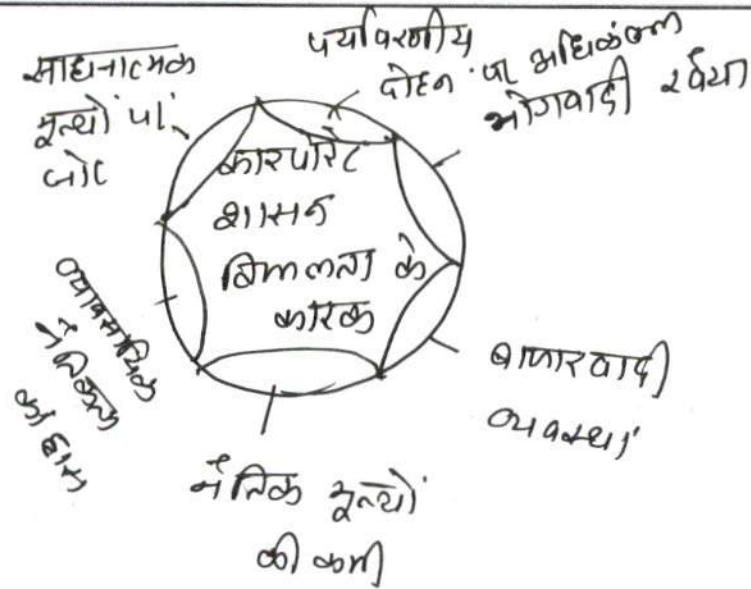 कारपोरेट
शासन
विफलता के
कारक
पर्यावरणीय
दोहन पर अधिकतम
भोगवादी रवैया
बाजारवादी
व्यवस्था
नैतिक मूल्यों
की कमी
व्यावसायिक
नैतिकता
का ह्रास
साधनात्मक
मूल्यों पर
जोर